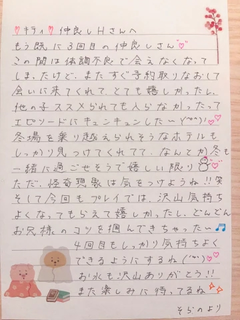 仲良しHさんへ
もう既に3回目の仲良しさん
この間は体調不良で会えなくなって
しまったけど、またすぐ予約取りなおして
会いに来てくれて とても嬉しかったし、
他の子ススメられても入らなかったって
エピソードにキュンキュンしたー(^^)
冬場を乗り越えられそうなホテルも
しっかり見つけてくれてて、なんか冬も
一緒に過ごせそうで嬉しい限り
ただ、怪奇現象は気をつけようね!!笑
そして今回もプレイでは、沢山気持ち
よくなってもらえて嬉しかったし、どんどん
お兄様のコツを掴んできちゃったー♪
4回目もしっかり気持ちよく
できるようにするね(^^)
お水も沢山ありがとう!!
また楽しみに待ってるね
そらのより